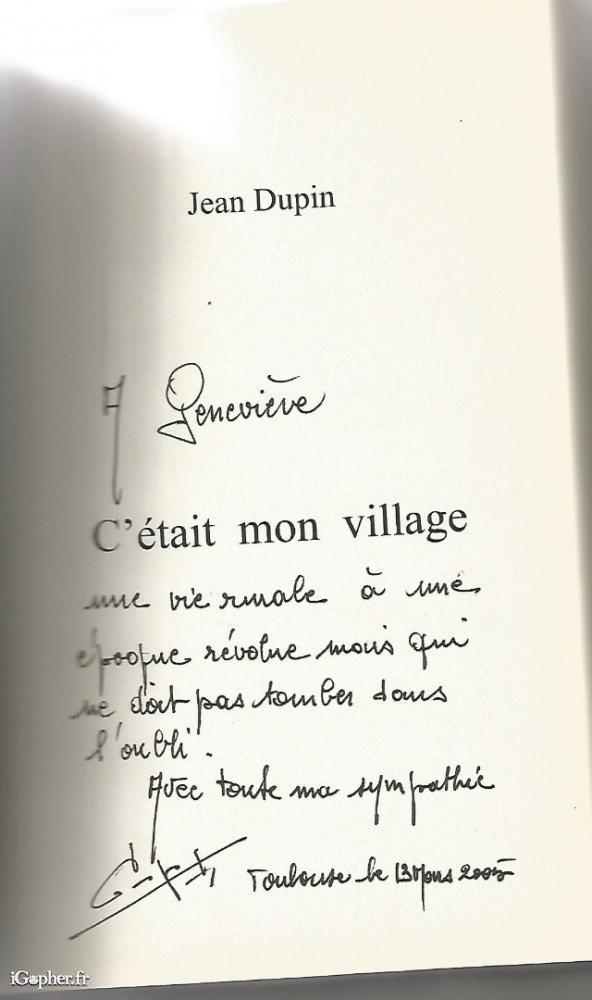 Jean Dupin
A Geneviève
C'était mon village
une vie rurale à une
époque révolue mais qui
ne doit pas tomber dans
l'oubli.
Avec toute ma sympathie
Toulouse le 13 Mars 2005
iGopher.fr